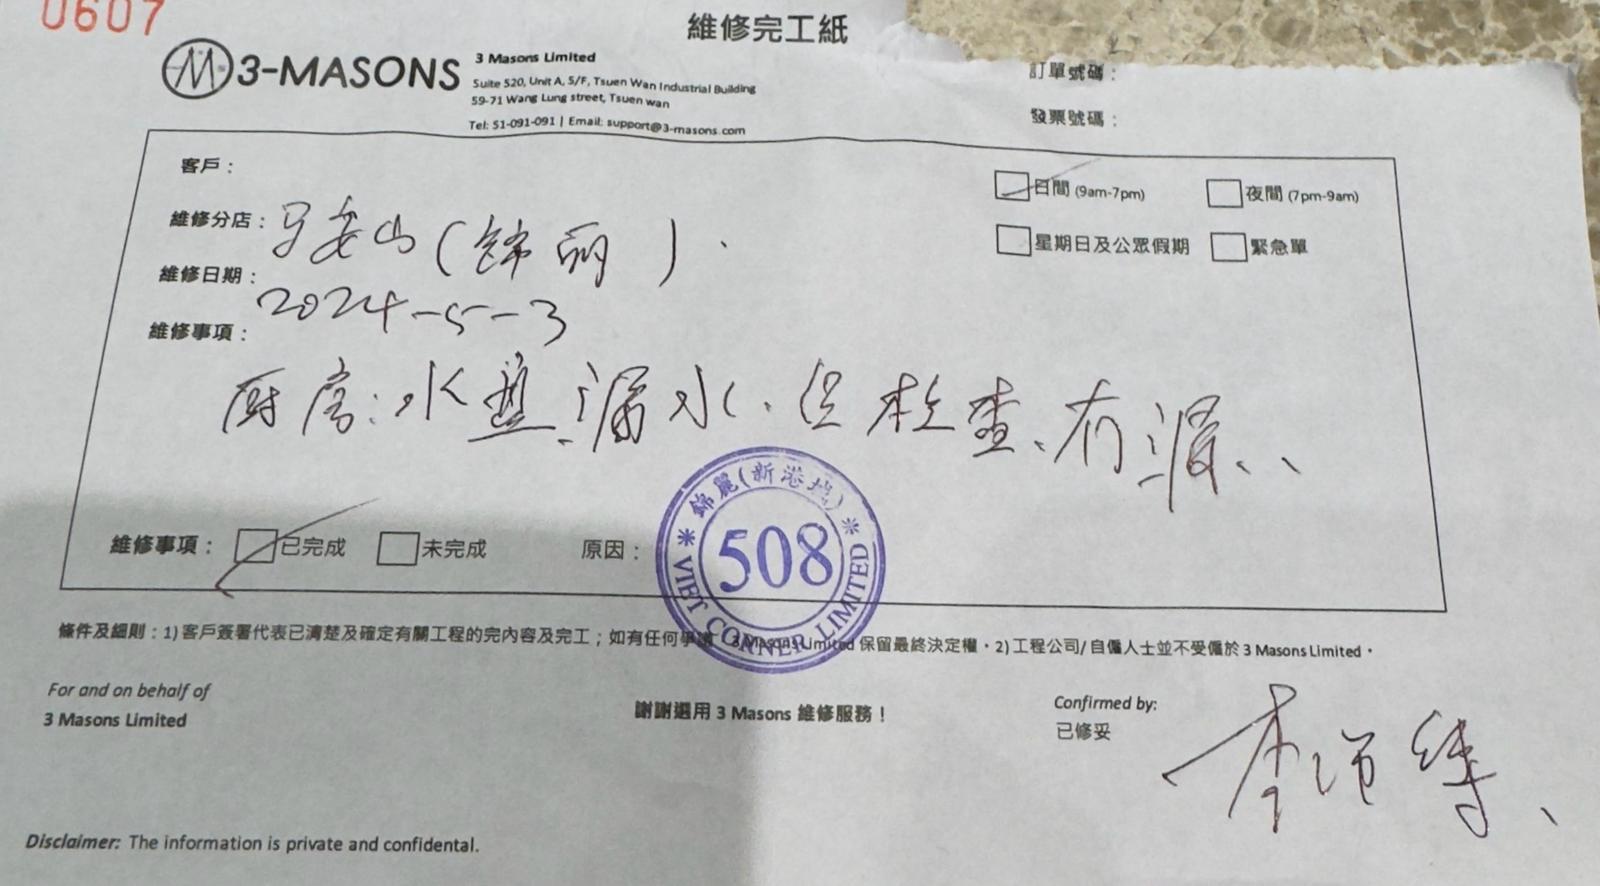 0607
維修完工紙
3-MASONS
3 Masons Limited
Suite 520, Unit A, 5/F, Tsuen Wan Industrial Building
59-71 Wang Lung street, Tsuen wan
Tel: 51-091-091 | Email: support@3-masons.com
訂單號碼：
發票號碼：
客戶：
日間 (9am-7pm) 夜間 (7pm-9am)
維修分店：马鞍山(錦丽)
星期日及公眾假期 緊急單
維修日期：2024-5-3
維修事項：
厨房:水盤漏水.但检查、有漏、、
維修事項： 已完成 未完成 原因：
錦麗(新港城)
508
VIET CORNER LIMITED
條件及細則：1) 客戶簽署代表已清楚及確定有關工程的完內容及完工；如有任何爭議 3 Masons Limited 保留最終決定權。2) 工程公司/ 自僱人士並不受僱於 3 Masons Limited。
For and on behalf of
3 Masons Limited
謝謝選用 3 Masons 維修服務！
Confirmed by:
已修妥
李
Disclaimer: The information is private and confidential.